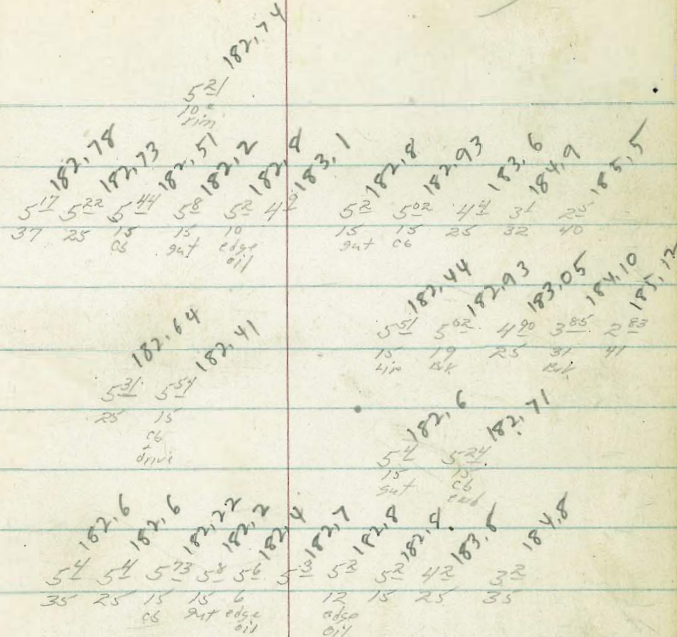 182,74
5 21
10 e
rim
182,78 182,73 182,51 182,2 182,8 183,1 182,8 182,93 183,6 184,9 185,5
5 17 5 22 5 44 5 8 5 2 4 9 5 2 5 02 4 4 3 1 2 5
37 25 15 15 10 15 15 25 32 40
cb gut edge gut cb
oil
182,44 182,93 183,05 184,10 185,12
5 51 5 02 4 90 3 85 2 83
15 19 25 31 41
Lip Brk Brk
182,64 182,41
5 31 5 54
25 15
cb
drive
182,6 182,71
5 4 5 24
15 15
gut cb
end
182,6 182,6 182,22 182,2 182,4 182,7 182,8 182,8 183,8 184,8
5 4 5 4 5 73 5 8 5 6 5 3 5 2 5 2 4 2 3 2
35 25 15 15 6 12 15 25 35
cb gut edge edge
oil oil